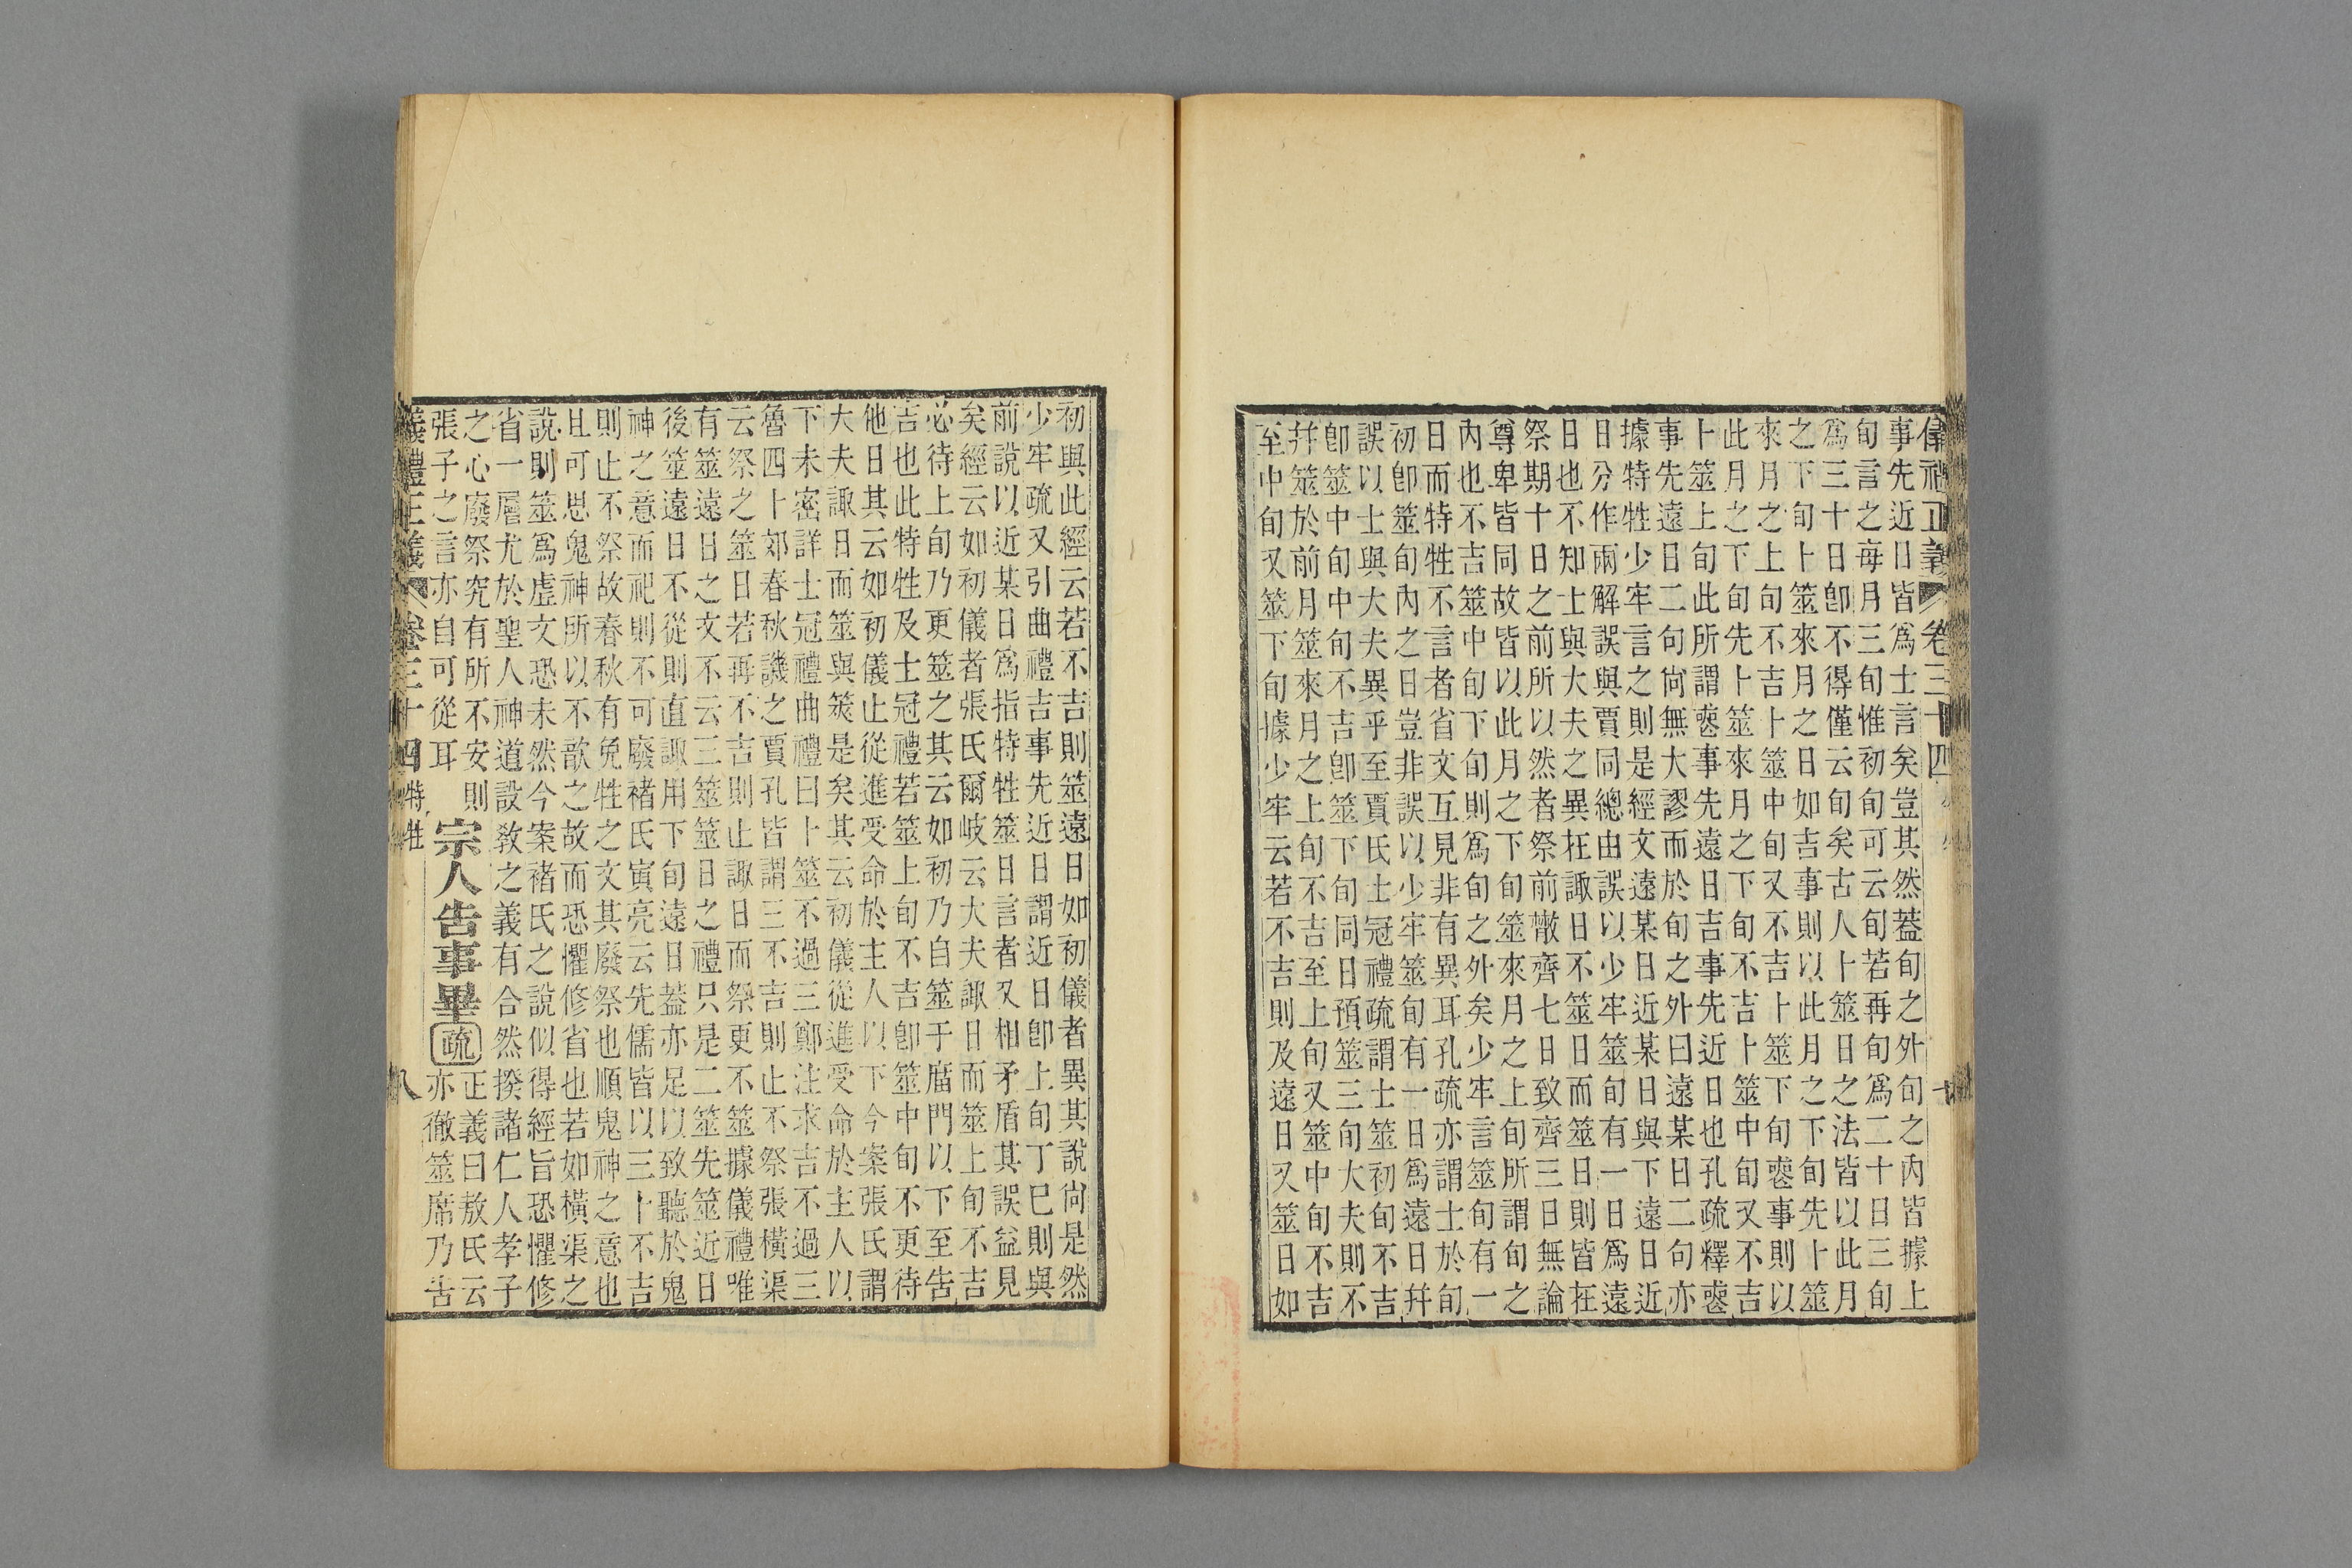 儀禮正義 卷三十四
七
事先近日皆爲士言矣豈其然蓋旬之外旬之内皆據上
旬言之每月三旬惟初旬可云旬若再旬爲二十日三旬
爲三十日卽不得僅云旬矣古人卜筮日之法皆以此月
之下旬卜筮來月之日如吉事則以此月之下旬先卜筮
來月之上旬不吉卜筮中旬又不吉卜筮下旬喪事則以
此月之下旬先卜筮來月之下旬不吉卜筮中旬又不吉
卜筮上旬此所謂喪事先遠日吉事先近日也孔疏釋喪
事先遠日二句尙無大謬而於旬之外曰遠某日二句亦
據特牲少牢言之則是經文遠某日近某日與下遠日近
日分作兩解誤與賈同總由誤以少牢筮旬有一日爲遠
日也不知士與大夫之異在諏日不筮日而筮日則皆在
祭期十日之前所以然者祭前散齊七日致齊三日無論
尊卑皆同故皆以此月之下旬筮來月之上旬所謂旬之
内也不吉筮中旬下旬則爲旬之外矣少牢言筮旬有一
日而特牲不言者省文互見非有異耳孔疏亦謂士於旬
初卽筮旬内之日豈非誤以少牢筮旬有一日爲遠日幷
誤以士與大夫異乎至賈氏士冠禮疏謂士筮初旬不吉
卽筮中旬中旬不吉卽筮下旬同日預筮三旬大夫則不
幷筮於前月筮來月之上旬不吉至上旬又筮中旬不吉
至中旬又筮下旬據少牢云若不吉則及遠日又筮日如
初與此經云若不吉則筮遠日如初儀者異其說尙是然
少牢疏又引曲禮吉事先近日謂近日卽上旬丁巳則與
前說以近某日爲指特牲筮日言者又相矛盾其誤益見
矣經云如初儀者張氏爾岐云大夫諏日而筮上旬不吉
必待上旬乃更筮之其云如初乃自筮于廟門以下至告
吉也此特牲及士冠禮若筮上旬不吉卽筮中旬不更待
他日其云如初儀止從進受命於主人以下今案張氏謂
大夫諏日而筮與筴是矣其云初儀從進受命於主人以
下未密詳士冠禮曲禮曰卜筮不過三鄭注求吉不過三
魯四十郊春秋譏之賈孔皆謂三不吉則止不祭張橫渠
云祭之筮日若再不吉則止諏日而祭更不筮據儀禮唯
有筮遠日之文不云三筮筮日之禮只是二筮先筮近日
後筮遠日不從則直諏用下旬遠日蓋亦足以致聽於鬼
神之意而祀則不可廢褚氏寅亮云先儒皆以三卜不吉
則止不祭故春秋有免牲之文其廢祭也順鬼神之意也
且可思鬼神所以不歆之故而恐懼修省也若如橫渠之
說則筮爲虛文恐未然今案褚氏之說似得經旨恐懼修
省一層尤於聖人神道設敎之義有合然揆諸仁人孝子
之心廢祭究有所不安則
張子之言亦自可從耳
宗人告事畢疏
正義曰敖氏云
亦徹筮席乃告
儀禮正義 卷三十四 特牲
八